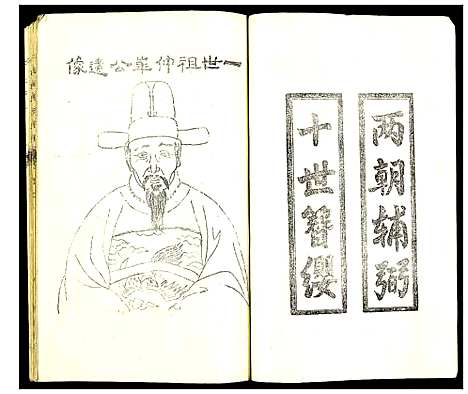 兩朝辅弼
十世簪纓
一世祖仲華公遺像